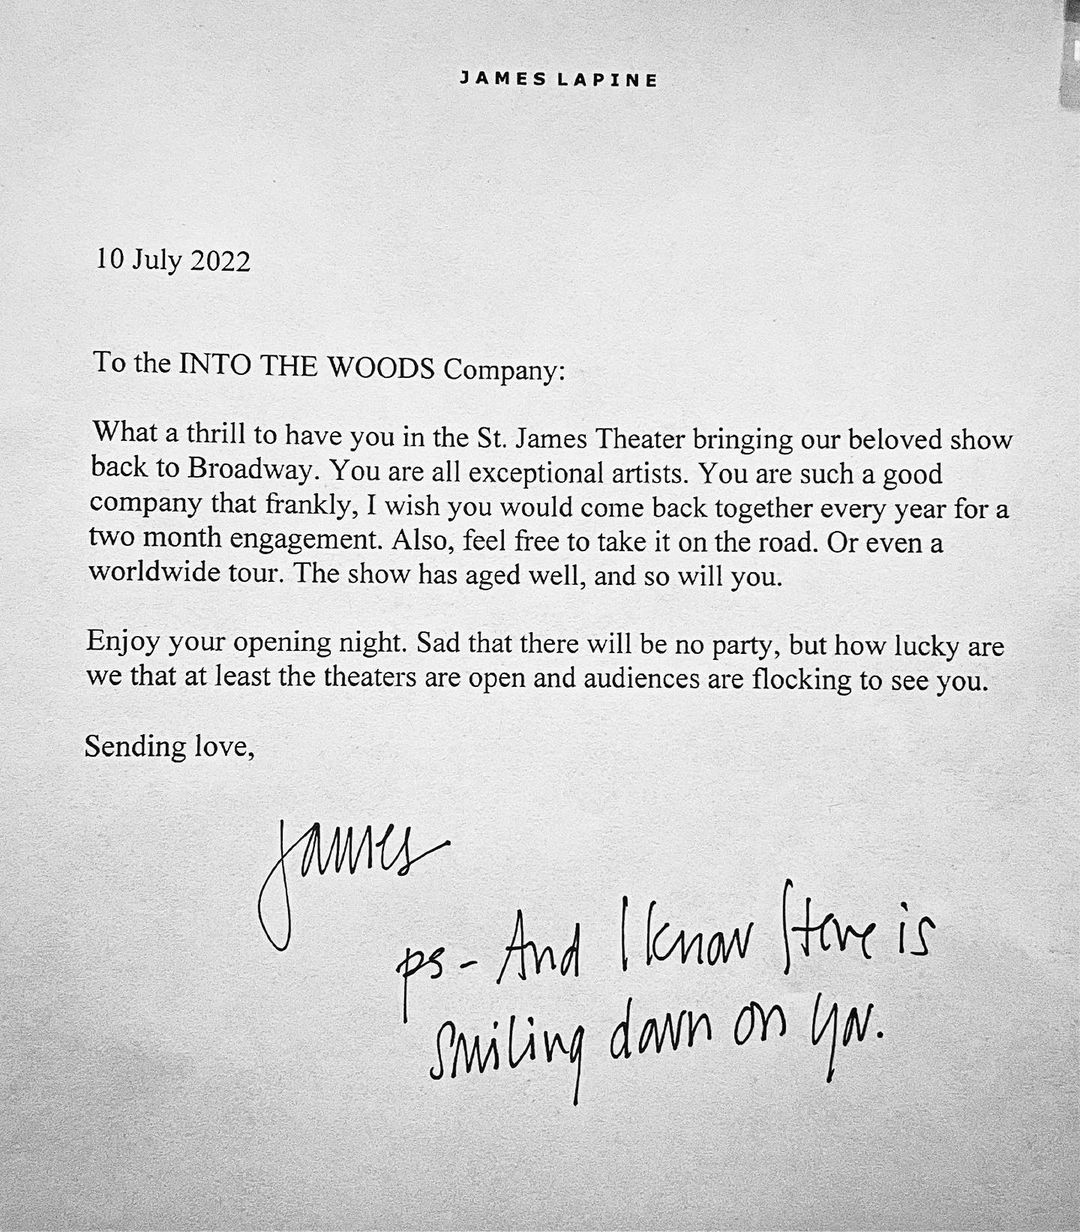 JAMES LAPINE
10 July 2022
To the INTO THE WOODS Company:
What a thrill to have you in the St. James Theater bringing our beloved show
back to Broadway. You are all exceptional artists. You are such a good
company that frankly, I wish you would come back together every year for a
two month engagement. Also, feel free to take it on the road. Or even a
worldwide tour. The show has aged well, and so will you.
Enjoy your opening night. Sad that there will be no party, but how lucky are
we that at least the theaters are open and audiences are flocking to see you.
Sending love,
James
ps - And I know Steve is
smiling down on you.